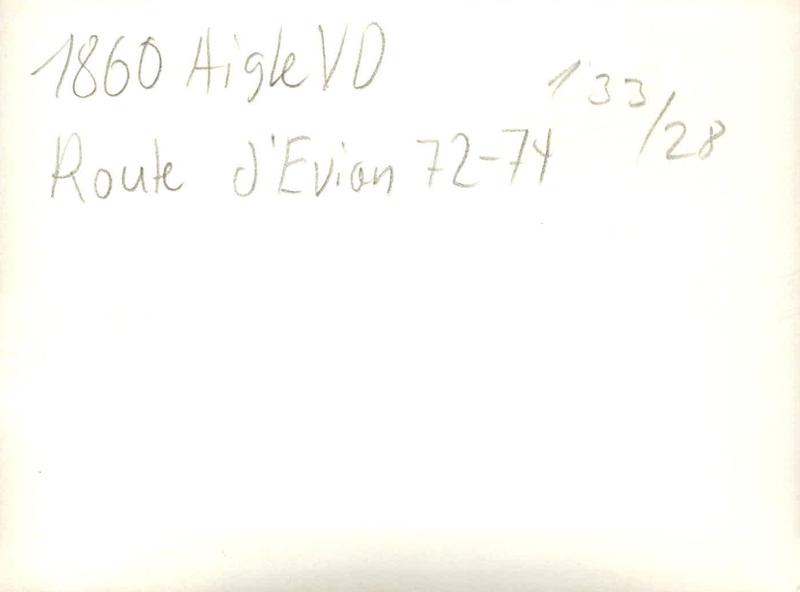 1860 Aigle VD
133/28
Route d'Evian 72-74